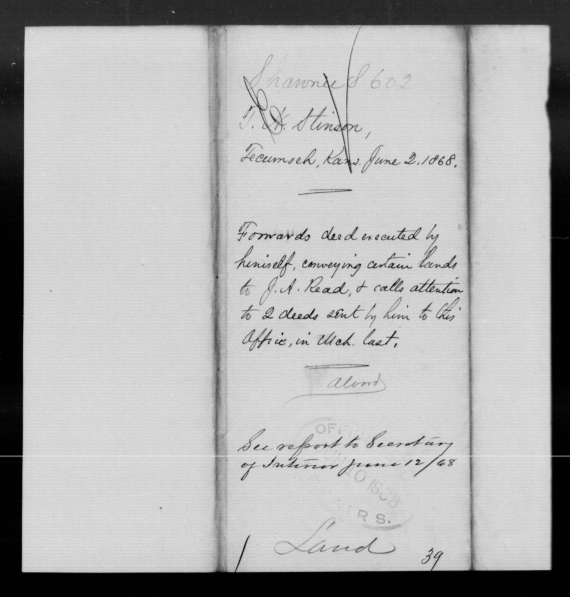 Shawnee S 602
T. H. Stinson,
Tecumseh, Kans. June 2, 1868.
Forwards deed executed by
himself, conveying certain lands
to J. A. Read, & calls attention
to 2 deeds sent by him to this
Office, in Mch. last.
See report to Secretary
of Interior June 12/68
1868
RS.
Land
39